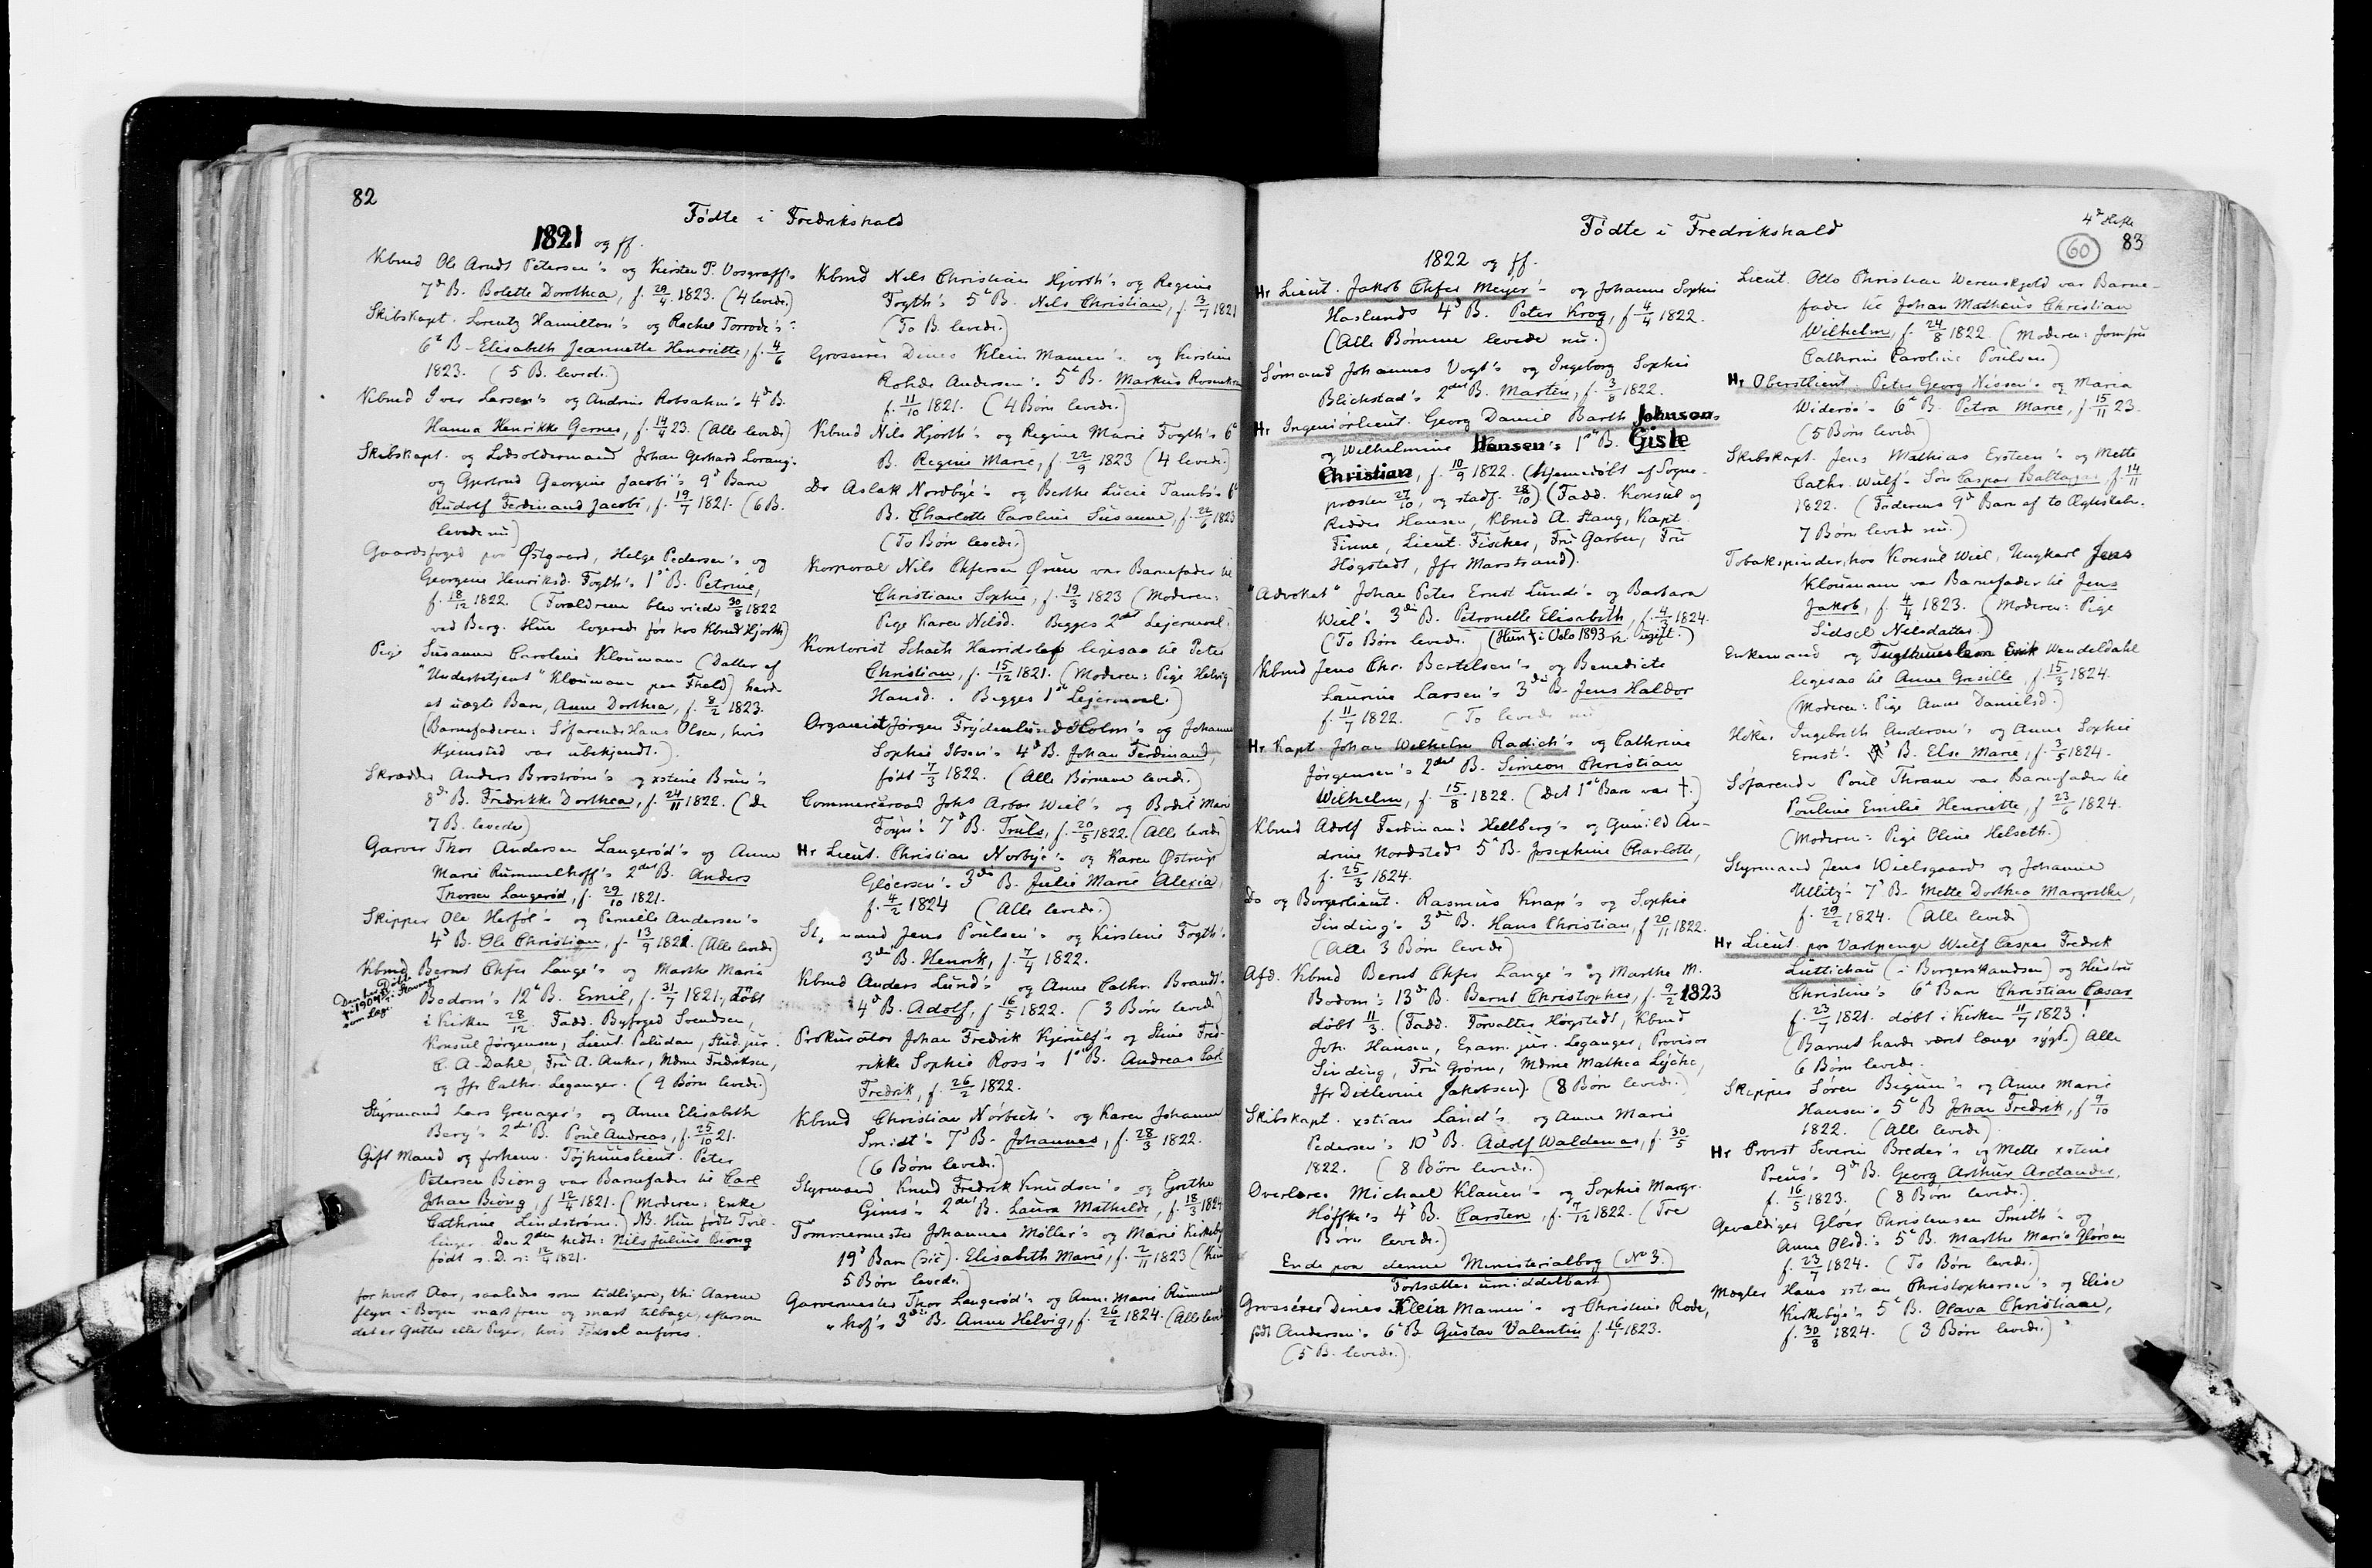 82
Födte i Fredrikshald
1821 og ff.
Kbmd Ole Arndt Petersen's og Kirsten P. Vosgraff's
7d B. Bolette Dorothea, f. 29/4 1823. (4 levede.)
Skibskapt. Lorentz Hamilton's og Rachel Torrode's
6te B. Elisabeth Jeannette Henriette, f. 4/6
1823. (5 B. levede.)
Kbmd Iver Larsen's og Andrine Robsahm's 4d B.
Hanna Henrikke Gerner, f. 14/4 23. (Alle levede)
Skibskapt. og Lodsoldermand Johan Gerhard Lorang's
og Gjertrud Georgine Jacobi's 9d Barn
Rudolf Ferdinand Jacobi, f. 19/7 1821. (6 B.
levede nu)
Gaardsfoged paa Østgaard, Helge Pedersen's og
Georgine Henriksd. Fogth's 1ste B. Petrine,
f. 18/12 1822. (Forældrene blev viede 30/8 1822
ved Berg. Hun logerede før hos Kbmd Hjorth)
Pige Susanne Caroline Kloumann (Datter af
"Underbetjent" Kloumann paa Fhald) havde
et uægte Barn, Anne Dorthea, f. 8/2 1823.
(Barnefaderen: Søfarende Hans Olsen, hvis
Hjemsted var ubekjendt.)
Skrædder Anders Broström's og xstine Brun's
8de B. Fredrikke Dorthea, f. 24/11 1822. (de
7 B. levede)
Garver Thor Andersen Langerød's og Anne
Marie Rummelhoff's 2det B. Anders
Thorsen Langerød, f. 29/10 1821.
Skipper Ole Herføl's og Pernelle Andersen's
4d B. Ole Christian, f. 13/9 1821. (Alle levede)
Kbmd Bernt Chfer Lange's og Marthe Maria
Bodom's 12te B. Emil, f. 31/7 1821, döbt
i Kirken 28/12. Fadd. Byfoged Svendsen,
Konsul Jørgensen, Lieut. Paludan, Stud. jur.
C. A. Dahl, Fru A. Anker, Mdme Fredriksen,
og Jfr Cathr. Leganger. (9 Børn levede.)
Styrmand Lars Grenager's og Anne Elisabeth
Berg's 2det B. Poul Andreas, f. 25/10 21.
Gift Mand og forhenv. Tøjhuuslieut. Peter
Petersen Biong var Barnefader til Carl
Johan Biong, f. 12/4 1821. (Moderen: Enke
Cathrine Lindström.) NB. Hun fødte Tvil-
linger. Den 2den hedte: Nils Julius Biong
født s. D. : 12/4 1821.
for hvert Aar, saaledes som tidligere, thi Aarene
flyve i Bogen snart frem og snart tilbage, eftersom
det er Gutter eller Piger, hvis Fødsel anføres.
Kbmd Nils Christian Hjorth's og Regine
Fogth's 5te B. Nils Christian, f. 3/7 1821
(To B. levede.)
Grosserer Dines Klein Mamen's og Kirstine
Rohde Andersen's 5te B. Markus
f. 11/10 1821. (4 Børn levede.)
Kbmd Nils Hjorth's og Regine Marie Fogth's 6te
B. Regine Marie, f. 22/9 1823 (4 levede.)
Do Aslak Nordbye's og Berthe Lucie Tambs's
B. Charlotte Caroline Susanne, f. 22/6 1823
(To Børn levede.)
Korporal Nils Chfersen Ørum var Barnefader til
Christiane Sophie, f. 19/3 1823 (Moderen:
Pige Karen Nilsd. Begges 2det Lejermaal.
Kontorist Schach Harridslef ligesaa til Peter
Christian, f. 15/12 1821. (Moderen: Pige Helvig
Hansd. Begges 1ste Lejermaal.)
Organist Jørgen Frydenlund Holm's og Johanne
Sophie Ibsen's 4d B. Johan Ferdinand,
född 7/3 1822. (Alle Børnene levede.)
Commerceraad Johs Arboe Wiel's og Bodil Marie
Foyn's 7d B. Truls, f. 20/5 1822. (Alle levede)
Hr Lieut. Christian Norbye's og Karen Østrup
Gløersen's 3die B. Julie Marie Alexia,
f. 4/2 1824 (Alle levede.)
Styrmand Jens Poulsen's og Kirstine Fogth's
3die B. Henrik, f. 7/4 1822.
Kbmd Anders Lund's og Anne Cathr. Brandt's
4d B. Adolf, f. 16/5 1822. (3 Børn levede)
Prokurator Johan Fredrik Kjerulf's og Line Fred-
rikke Sophie Ross's 1ste B. Andreas Carl
Fredrik, f. 26/2 1822.
Kbmd Christian Nörbech's og Karen Johanne
Smidt's 7d B. Johannes, f. 28/3 1822.
(6 Børn levede.)
Styrmand Knud Fredrik Knudsen's og Grethe
Gines's 2det B. Laura Mathilde, f. 18/3 1824
Tømmermester Johannes Møller's og Marie Kirkeby
19d Barn (sic). Elisabeth Marie, f. 2/11 1823 (Kun
5 Børn levede.)
Garvermester Thor Langerød's og Anne Marie Rummel
hof's 3die B. Anne Helvig, f. 26/2 1824. (Alle leved
4d Hefte
60
83
Födte i Fredrikshald
1822 og ff.
Hr Lieut. Jakob Chfer Meyer's og Johanne Sophie
Haslunds 4d B. Peter Krog, f. 4/4 1822.
(Alle Børnene levede nu.)
Sömand Johannes Vogt's og Ingeborg Sophie
Blichstad's 2det B. Marten, f. 3/8 1822.
Hr Ingeniörlieut. Georg Daniel Barth Johnson's
og Wilhelmine Hansen's 1ste B. Gisle
Christian, f. 10/9 1822. (hjemmedöbt af Sogne-
præsten 27/10, og stadf. 28/10) (Fadd. Konsul og
Ridder Hansen, Kbmd A. Stang, Kapt.
Finne, Lieut. Fischer, Fru Garben, Fru
Høgstedt, Jfr Marstrand).
"Advokat" Johan Peter Ernst Lund's og Barbara
Wiel's 3die B. Petronelle Elisabeth, f. 4/3 1824.
(To Børn levede.) (Hun † i Oslo 1893 Ugift.)
Kbmd Jens Chr. Bertelsen's og Benedicte
Laurine Larsen's 3die B. Jens Haldor
f. 11/7 1822. (To levede nu
Hr Kapt. Johan Wilhelm Radich's og Cathrine
Jørgensen's 2det B. Simeon Christian
Wilhelm, f. 15/8 1822. (Det 1ste Barn var †.)
Kbmd Adolf Ferdinand Hellberg's og Gunild An-
drine Nordsteds 5te B. Josephine Charlotte,
f. 25/3 1824.
do og Borgerlieut. Rasmus Knap's og Sophie
Sinding's 3die B. Hans Christian, f. 20/11 1822.
(Alle 3 Børn levede)
Afd. Kbmd Bernt Chfer Lange's og Marthe M.
Bodom's 13de B. Bernt Christopher, f. 9/2 1823
döbt 11/3. (Fadd. Forvalter Høgstedt, Kbmd
Joh. Hansen, Exam. jur. Leganger, Provisor
Sinding, Fru Grönn, Mdme Mathea Lyche,
Jfr Ditlevine Jakobsen). (8 Børn levede.)
Skibskapt. xstian Lund's og Anne Marie
Pedersen's 10d B. Adolf Waldemar, f. 30/5
1822. (8 Börn levede.)
Overlærer Michael Klauen's og Sophie Margr.
Høffke's 4d B. Carsten, f. 7/12 1822. (Tre
Børn levede.)
Ende paa denne Ministerialbog (No 3.)
Fortsættes umiddelbart)
Grosserer Dines Klein Mamen's og Christine Rode,
født Andersen's 6te B. Gustav Valentin f. 16/1 1823.
(5 B. levede.)
Lieut. Otto Christian Werenskjold var Barne-
fader til Johan Mathias Christian
Wilhelm, f. 24/8 1822. (Moderen: Jomfru
Cathrine Caroline Poulsen)
Hr Oberstlieut. Peter Georg Nissen's og Maria
Widerøe's 6te B. Petra Marie, f. 15/11 23.
(5 Børn levede)
Skibskapt. Jens Mathias Exsteen's og Mette
Cathr. Wulf's Sön Caspar Baltazar f. 14/11
1822. (Faderens 9d Barn af to Ægteskaber.
7 Børn levede nu.)
Tobakspinder, hos Konsul Wiel, Ungkarl Jens
Kloumann var Barnefader til Jens
Jakob, f. 4/4 1823. (Moderen: Pige
Sidsel Nilsdatter.)
Enkemand og Tugthuuslem Erik Wendeldahl
ligesaa til Anne Grisille, f. 15/5 1824.
(Moderen: Pige Anne Danielsd.)
Høker Ingebreth Andersen's og Anne Sophie
Ernst's B. Else Marie, f. 3/5 1824.
Söfarende Poul Thrane var Barnefader til
Pouline Emilie Henriette, f. 23/6 1824.
(Moderen: Pige Oline Helseth.)
Styrmand Jens Wielsgaard's og Johanne
Ullitz's 7d B. Mette Dorthea Margrethe,
f. 29/2 1824. (Alle levede)
Hr Lieut. paa Vartpenge Wulf Caspar Fredrik
Lüttichau (i Borgerstanden) og Hustru
Christine's 6te Barn Christian Cæsar
f. 23/7 1821. döbt i Kirken 11/7 1823!
(Barnet havde været længe sygt.) Alle
6 Børn levede.
Skipper Søren Bigum's og Anne Marie
Hansen's 5te B. Johan Fredrik, f. 9/10
1822. (Alle levede)
Hr Provst Severin Breder's og Mette xstine
Preus's 9d B. Georg Arthur Arctander,
f. 16/5 1823. (8 Børn levede.)
Gevaldiger Glöer Christensen Smith's og
Anne Olsd.'s 5te B. Marthe Marie Glörsen
f. 23/7 1824. (To Børn levede.)
Mægler Hans xstian Christophersen's og Elise
Kirkebye's 5te B. Olava Christiane,
f. 30/8 1824. (3 Børn levede.)